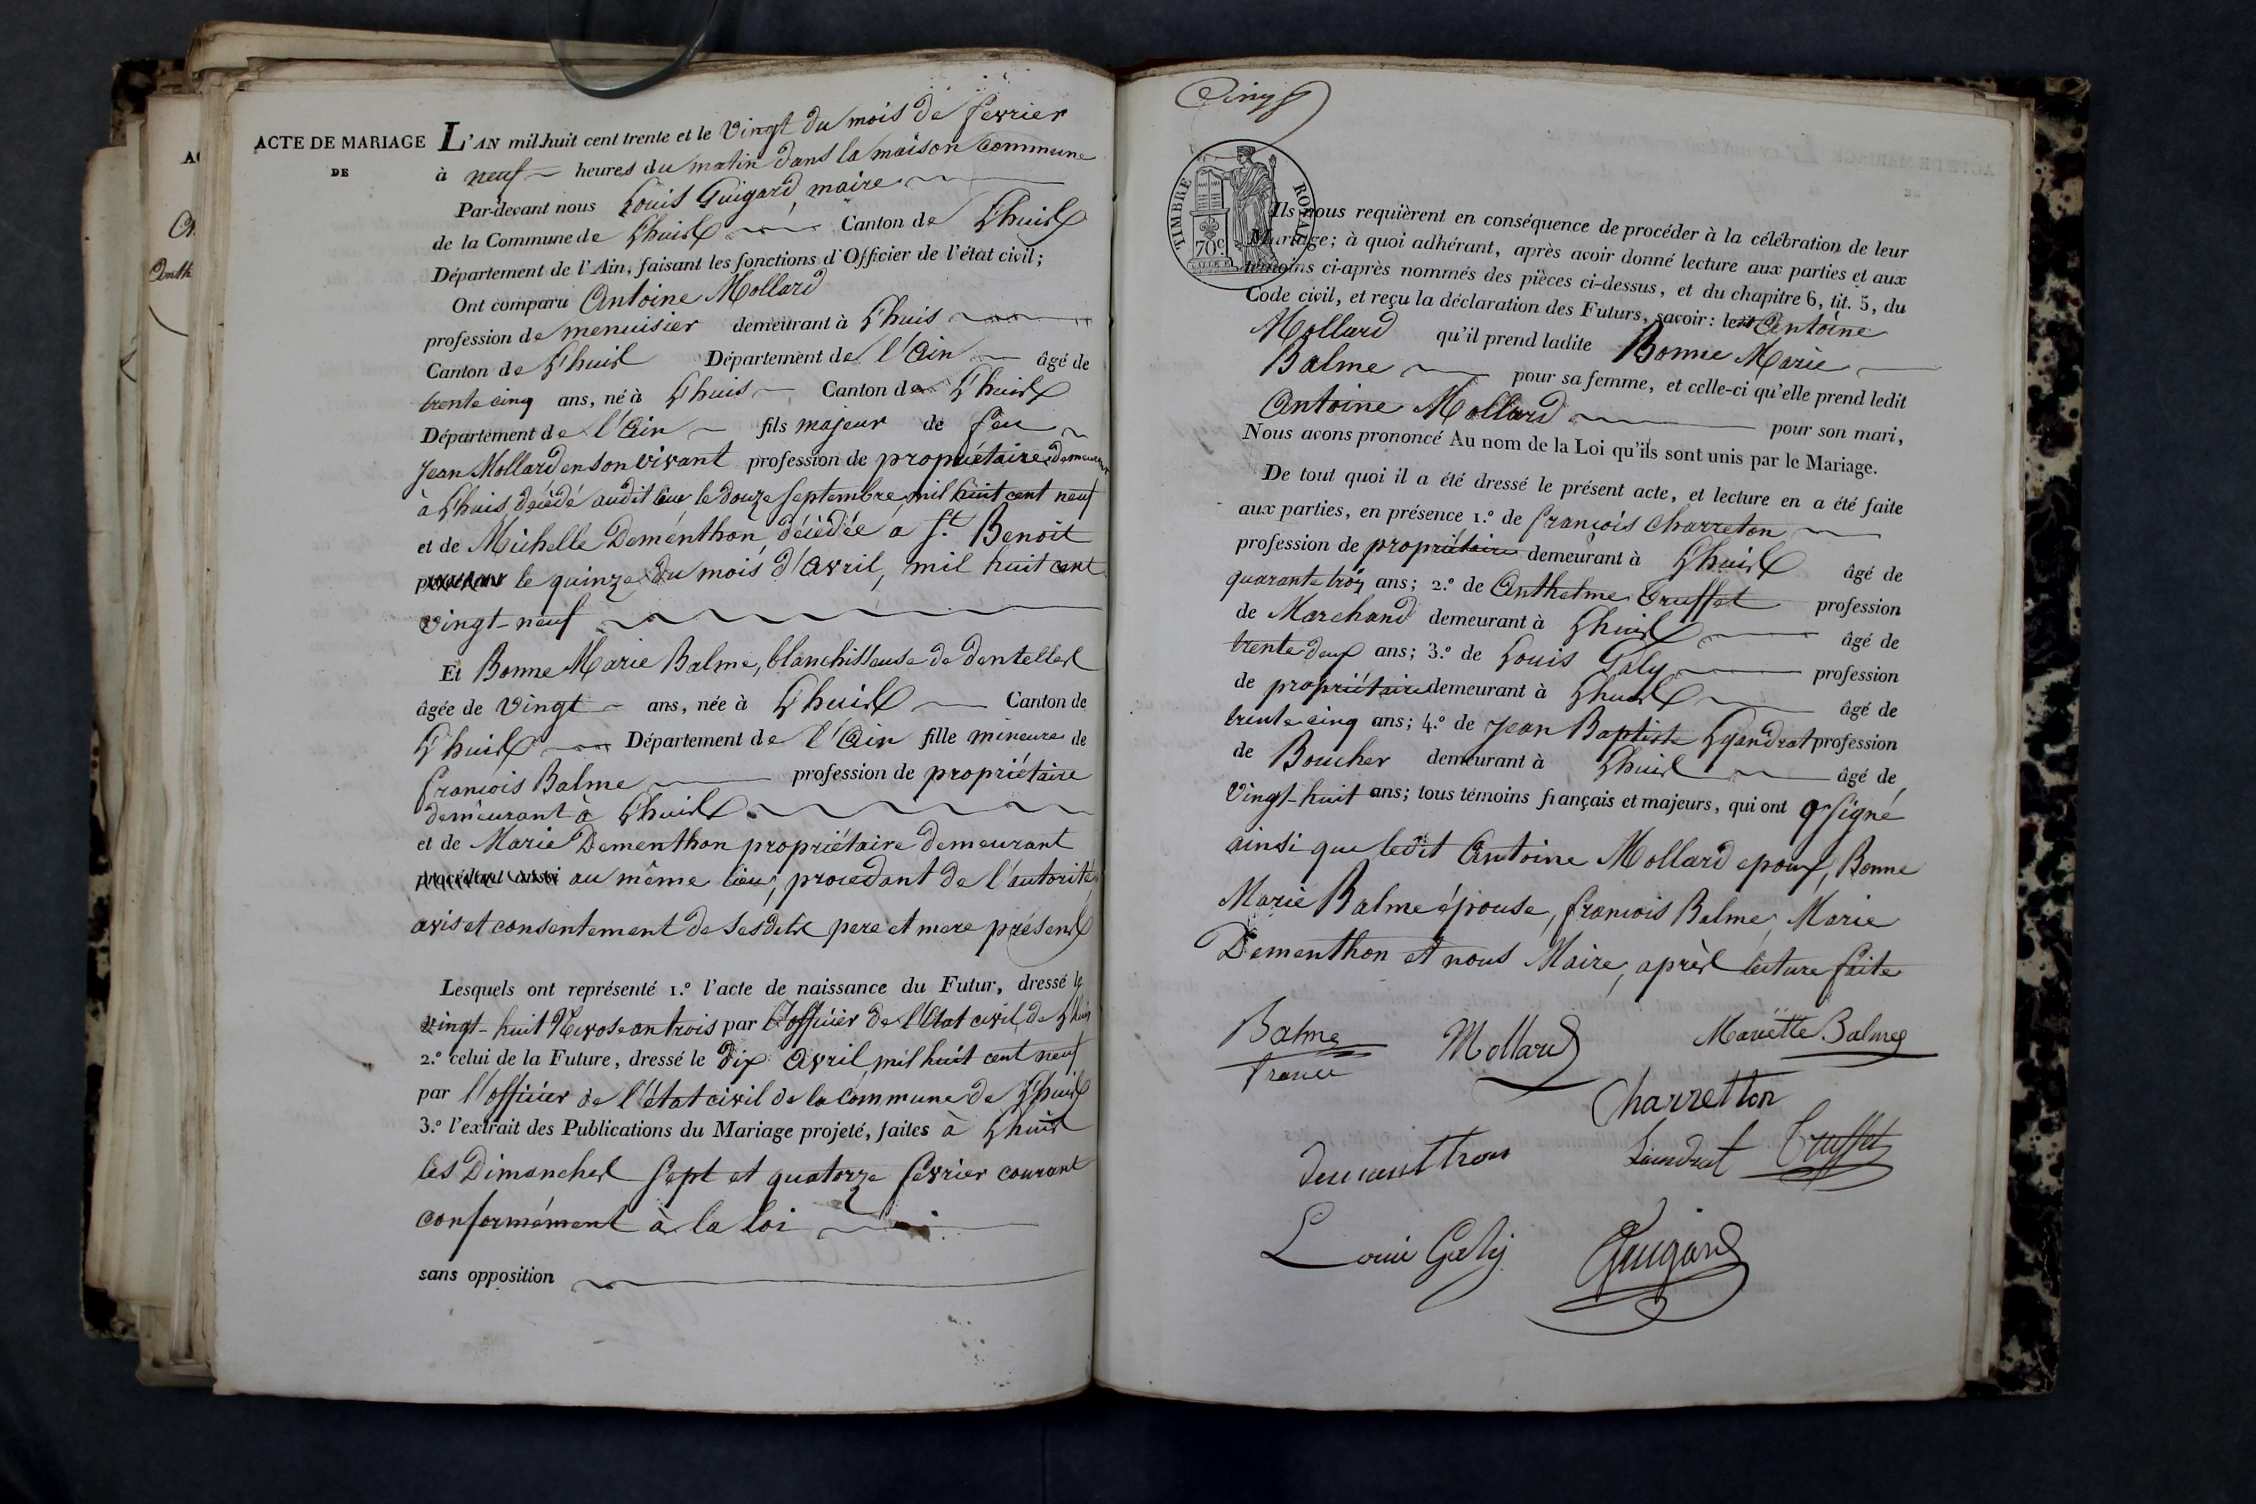 ACTE DE MARIAGE
DE
L'AN mil huit cent trente et le Vingt du mois de fevrier
à neuf heures du matin dans la maison commune
Par-devant nous Louis Guigard, maire
de la Commune de Lhuis Canton de Lhuis
Département de l'Ain, faisant les fonctions d'Officier de l'état civil;
Ont comparu Antoine Mollard
profession de menuisier demeurant à Lhuis
Canton de Lhuis Département de l'Ain âgé de
trente cinq ans, né à Lhuis Canton de Lhuis
Département de l'Ain fils majeur de feu
Jean Mollard en son vivant profession de propriétaire demeurant
à Lhuis, décédé audit lieu le douze septembre mil huit cent neuf
et de Michelle Deménthon décédée a St. Benoit
le quinze du mois d'avril, mil huit cent
vingt-neuf
Et Bonne Marie Balme, blanchisseuse de dentelles
âgée de vingt ans, née à Lhuis Canton de
Lhuis Département de l'Ain fille mineure de
françois Balme profession de propriétaire
demeurant à Lhuis
et de Marie Dementhon propriétaire demeurant
procédant aussi au même lieu, procedant de l'autorité
avis et consentement de sesdits pere et mere présens
Lesquels ont représenté 1.º l'acte de naissance du Futur, dressé le
vingt-huit Nivose an trois par l'officier de l'Etat civil de Lhuis
2.º celui de la Future, dressé le dix avril mil huit cent neuf
par l'officier de l'état civil de la commune de Lhuis
3.º l'extrait des Publications du Mariage projeté, faites à Lhuis
les Dimanches sept et quatorze fevrier courant
conformément à la loi
sans opposition
Cinq
TIMBRE ROYAL
70c
Ils nous requièrent en conséquence de procéder à la célébration de leur
Mariage; à quoi adhérant, après avoir donné lecture aux parties et aux
témoins ci-après nommés des pièces ci-dessus, et du chapitre 6, tit. 5, du
Code civil, et reçu la déclaration des Futurs, savoir: ledit Antoine
Mollard qu'il prend ladite Bonne Marie
Balme pour sa femme, et celle-ci qu'elle prend ledit
Antoine Mollard pour son mari,
Nous avons prononcé Au nom de la Loi qu'ils sont unis par le Mariage.
De tout quoi il a été dressé le présent acte, et lecture en a été faite
aux parties, en présence 1.º de françois Charreton
profession de propriétaire demeurant à Lhuis âgé de
quarante trois ans; 2.º de Anthelme Truffet profession
de Marchand demeurant à Lhuis âgé de
trente deux ans; 3.º de Louis Galy profession
de propriétaire demeurant à Lhuis âgé de
trente cinq ans; 4.º de Jean Baptiste Lyandrat profession
de Boucher demeurant à Lhuis âgé de
Vingt-huit ans; tous témoins français et majeurs, qui ont signé
ainsi que ledit Antoine Mollard epoux, Bonne
Marie Balme épouse, françois Balme, Marie
Dementhon et nous Maire, après lecture faite
Balme
Mollard
Mariëtte Balme
Charretton
dementhon
Liandrat
Truffet
Louis Galy
Guigard